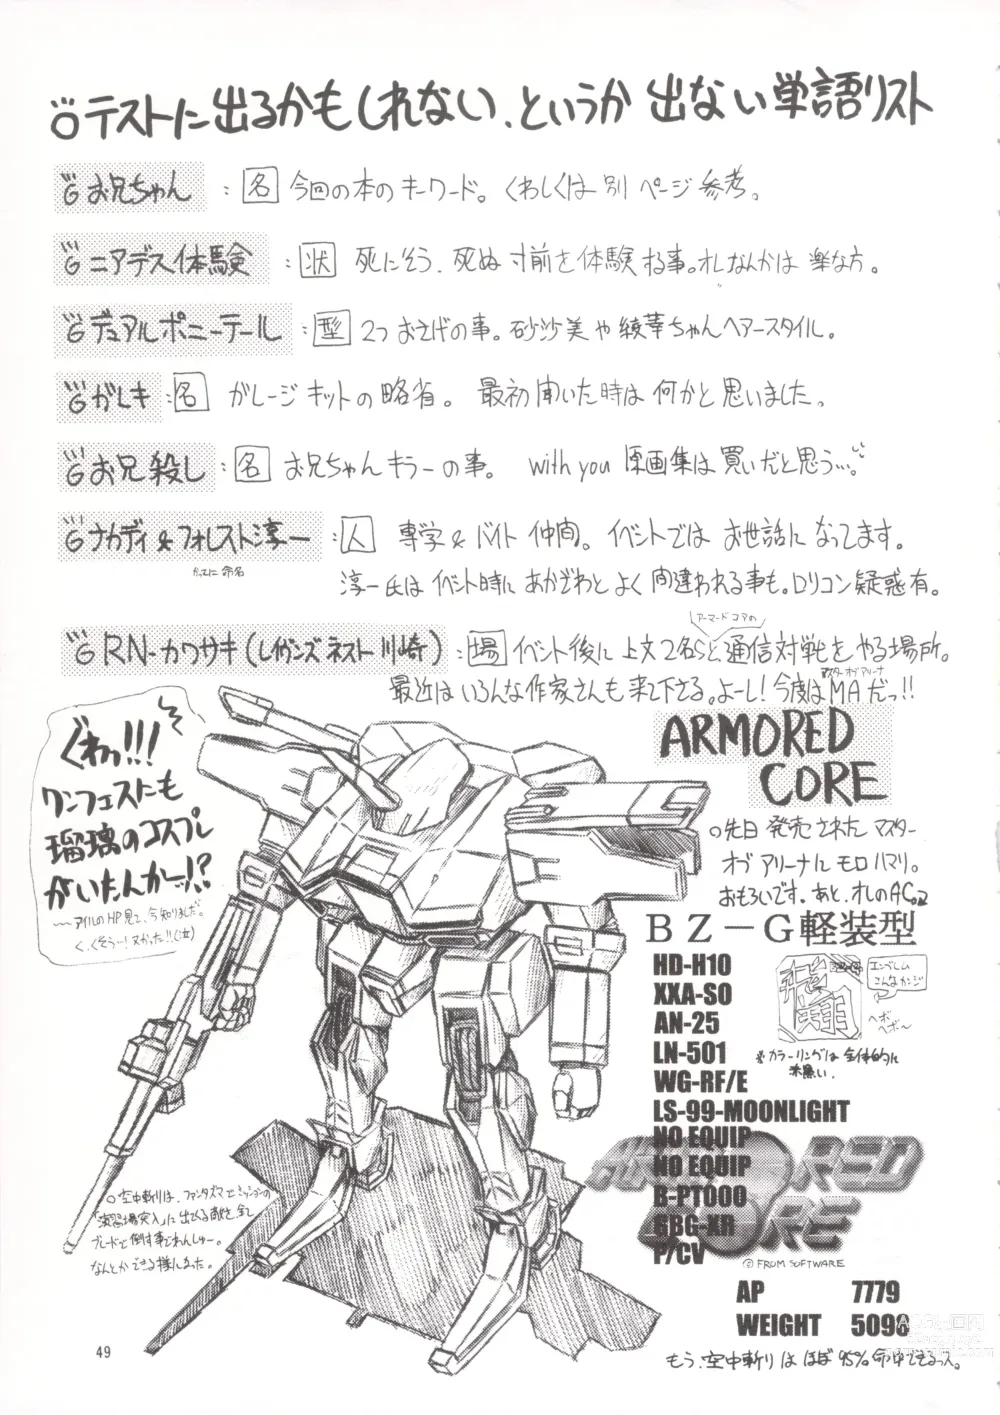 テストに出るかもしれない、というか 出ない単語リスト
お兄ちゃん : 名 今回の本のキーワード。くわしくは 別ページ参考。
ニアデス体験 : 状 死にそう、死ぬ寸前を体験する事。オレなんかは 楽な方。
デュアルポニーテール : 型 2つおさげの事。砂沙美や綾華ちゃんヘアースタイル。
ガレキ : 名 ガレージキットの略省。 最初聞いた時は何かと思いました。
お兄殺し : 名 お兄ちゃんキラーの事。 with you 原画集は買いだと思う…。
ナカディ&フォレスト淳一 : 人 専学&バイト仲間。イベントでは お世話になってます。
かってに命名
淳一氏はイベント時にあかざわとよく間違われる事も。ロリコン疑惑有。
アーマードコアの
RN-カワサキ(レイヴンズネスト川崎) : 場 イベント後に上文2名らと通信対戦をやる場所。
マスターオブアリーナ
最近はいろんな作家さんも来て下さる。よーし!今度はMAだっ!!
ARMORED
CORE
ぐわっ!!!
ワンフェスにも
瑠璃のコスプレ
がいたんかーッ!?
〜アイルのHP見て、今知りました。
く、くそうー!ヌかった!!(泣)
○先日 発売されたマスター
オブアリーナにモロハマリ。
おもろいです。あと、オレのACは
BZ－G軽装型
HD-H10
XXA-SO
AN-25
LN-501
WG-RF/E
LS-99-MOONLIGHT
NO EQUIP
NO EQUIP
B-PT000
SBG-XR
P/CV
エンブレム
こんなカンジ
ヘボ
ヘボ〜
※カラーリングは全体的に
赤黒い。
ARMORED
CORE
© FROM SOFTWARE
AP 7779
WEIGHT 5098
もう、空中斬りはほぼ95%命中できるっス。
○空中斬りは、ファンタズマのミッションの
「演習場突入」に出てくる敵を、全て
ブレードで倒す事でれんしゅー。
なんとかできる様になった。
49